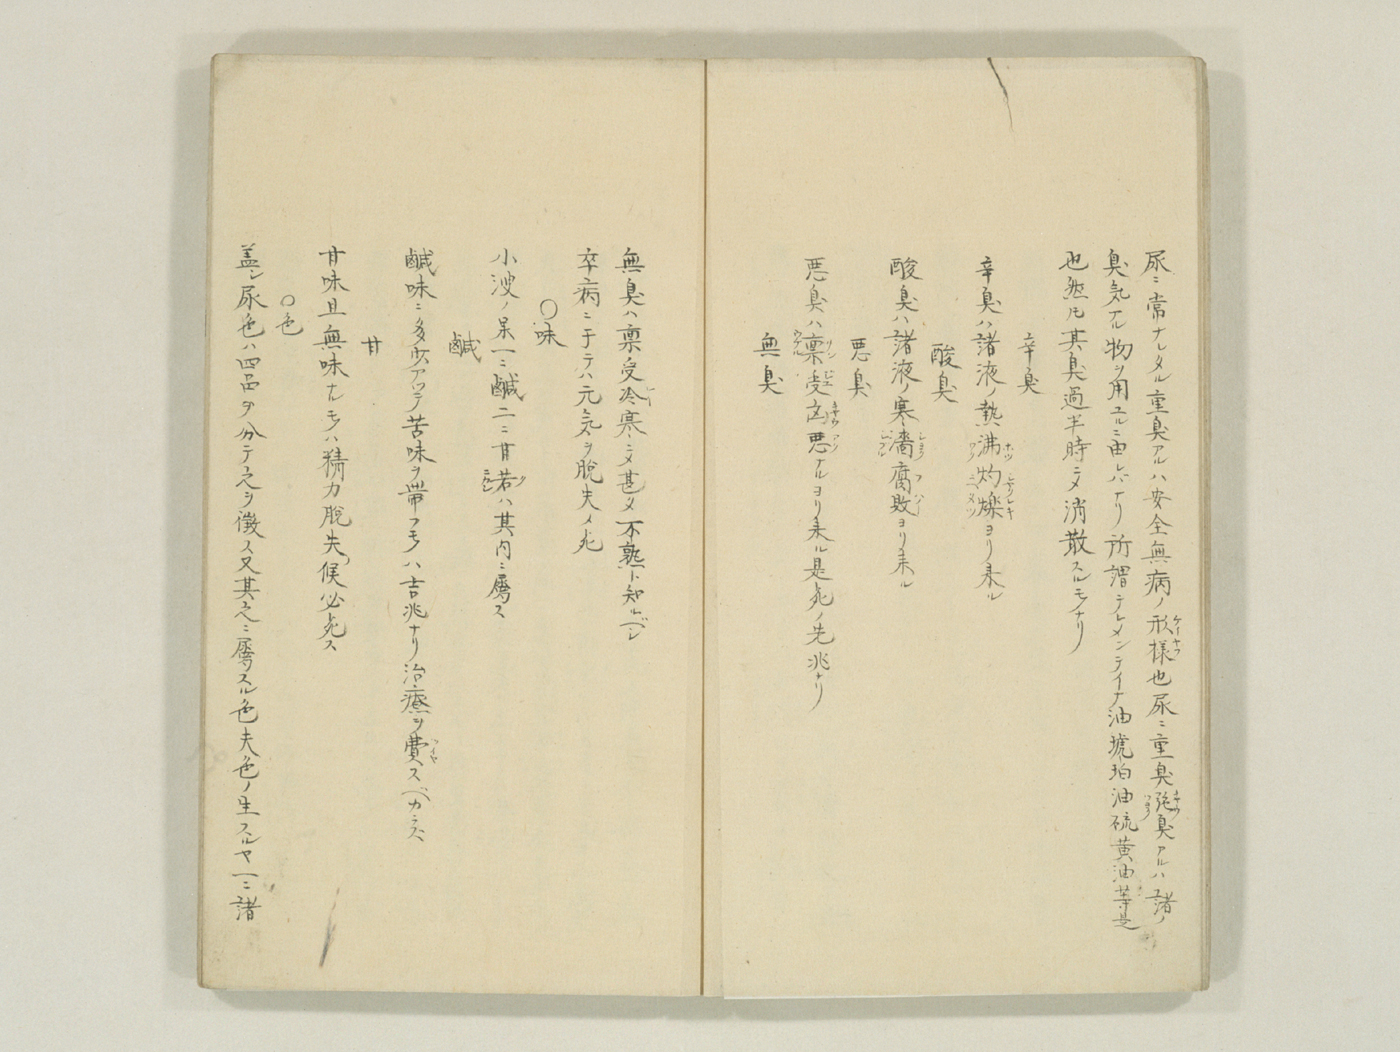 尿ニ常ナレタル重臭アルハ安全無病ノ形様也尿ニ重臭強臭アルハ諸ノ
臭気アル物ヲ用ユルニ由レバナリ所謂テレメンテイナ油琥珀油硫黄油等是
也然圧其臭過半時ニメ消散スルモノナリ
辛臭
辛臭ハ諸液ノ熱沸灼爍ヨリ来ル
酸臭
酸臭ハ諸液ノ寒嗇腐敗ヨリ来ル
悪臭
悪臭ハ稟受凶悪ナルヨリ来ル是死ノ先兆ナリ
無臭
無臭ハ稟受冷寒ニメ甚タ不熟ト知ルベシ
卒病ニ于テハ元気ヲ脱失メ死
〇味
小溲ノ味一ニ鹹二ニ甘若ハ其内ニ属ス
鹹
鹹味ニ多少アツテ苦味ヲ帯フモノハ吉兆ナリ治療ヲ費スベカラズ
甘
甘味且無味ナルモノハ精力脱失ノ候必死ス
〇色
盖シ尿色ハ四品ヲ分テ之ヲ徴ス又其之ニ属スル色夫色ノ生スルヤ一ニ諸